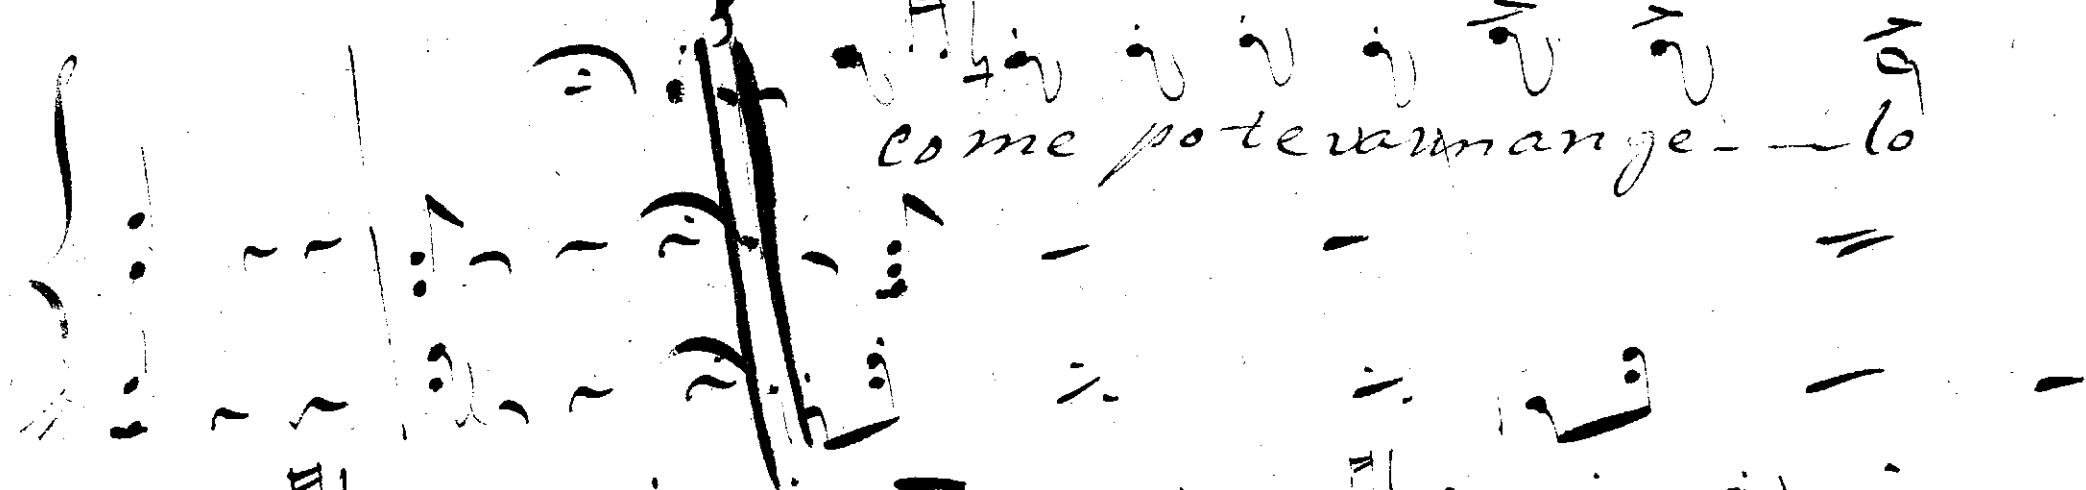 come potevan mange - - lo